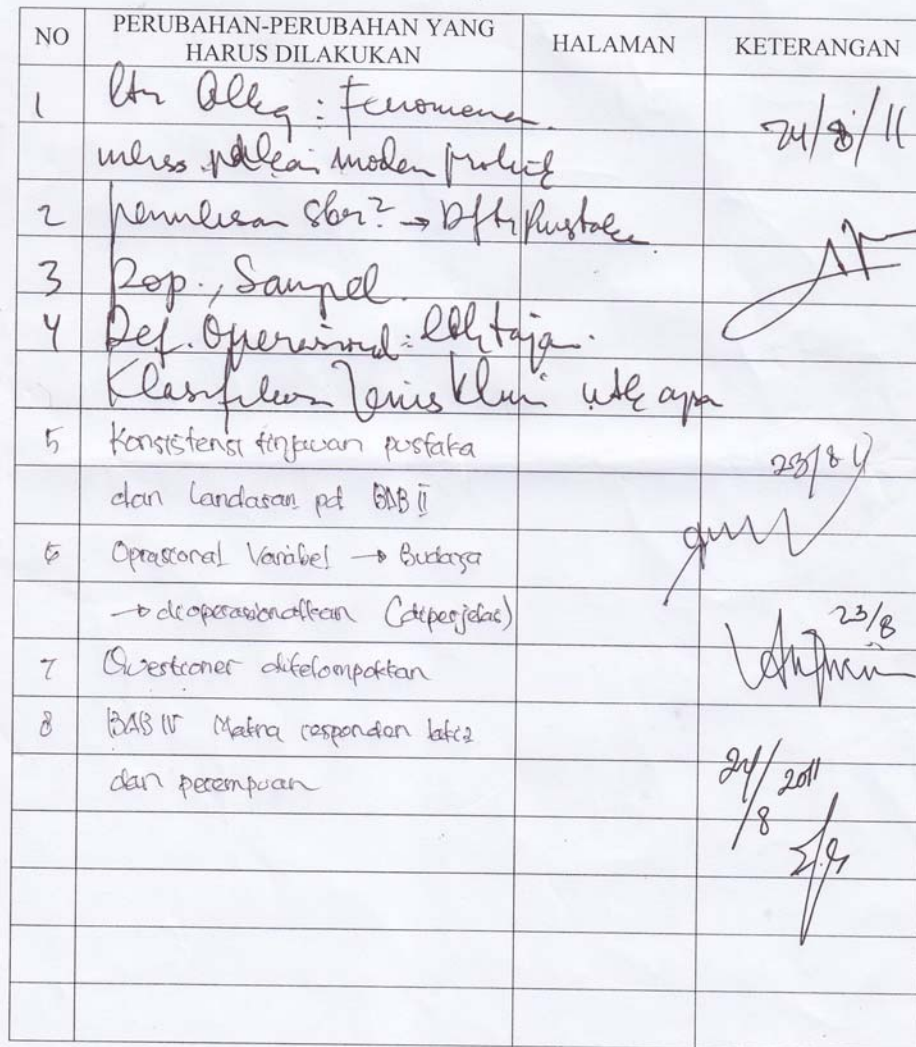 NO PERUBAHAN-PERUBAHAN YANG HARUS DILAKUKAN HALAMAN KETERANGAN
1 Ltr Blkg : Fenomena 24/8/11
2 penulisan Sbr² → Dftr Pustaka
3 Pop., Sampel.
4 Def. Operasional :
Klasifikasi Jenis utk apa
5 Konsistensi tinjauan pustaka 23/8
dan Landasan pd BAB II
6 Oprasional Variabel → Budaya
→ dioperasionalkan (diperjelas) 23/8
7 Questioner dikelompokkan
8 BAB IV Makna responden laki2 24/8 2011
dan perempuan